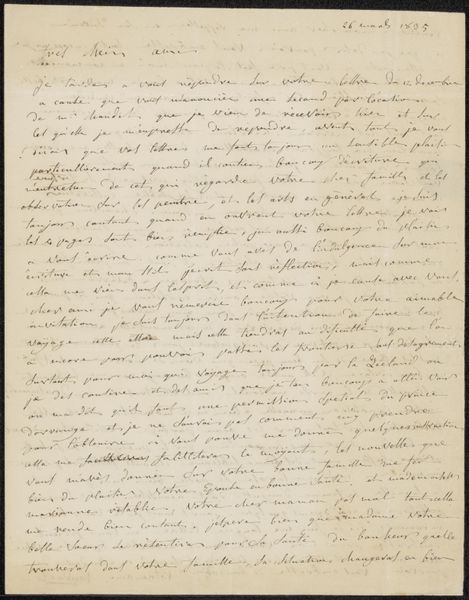 26 mars 1835
Mon cher ami
je tardes a vous répondre sur votre lettre du decembre
a cause que vous m'annoncier une second par location
de mr que je vien de recevoir hier et sur
je m'empresse de repondre, avant tout je vous
dirais que vos lettres me font toujours un sensible plaisir
particullierement quand il contien beaucoup décriture qui
de cet qui regarde votre cher famille et les
observation sur les peintre, et les arts en général je suis
toujours contant quand en ouvrant votre lettre je vois
les pages sont bien remplie, j'ai aussi beaucoup du plaisir
a vous ecrire comme vous avez de l'indulgence sur mon
ecriture et mon stil, jecrit sans reflection, mais comme
cella me vien dans l'esprit, et comme si je cause avec vous,
cher ami je vous remercie beaucoup pour votre aimable
invitation, je suis toujours dans l'intention de faire le
voyage cette mais cella tiendrat au dificulté que lon
a encore pour pouvoir passer les frontiere sans desagrement
surtout pour moi qui voyage toujours par la Zeeland ou
je des et des amis que je tien beaucoup a aller voir
on ma dit qu'il faut une permission special du prince
dorange et je ne saurais pas comment my prendre
pour l'obtenire si vous pouvie me donné quelques
cella me facilitera le moyent, les nouvelle que
vous mavez donner sur votre bonne famille me fon
bien du plaisir, votre Epouse en bonne santé et mademoiselle
marianne retablie, votre cher maman pas mal tout cella
me rende bien contant, jespere bien que madame votre
belle soeur se retentira pour sa santé du bonheur quelle
trouverat dans votre famille, sa situation changerat en bien